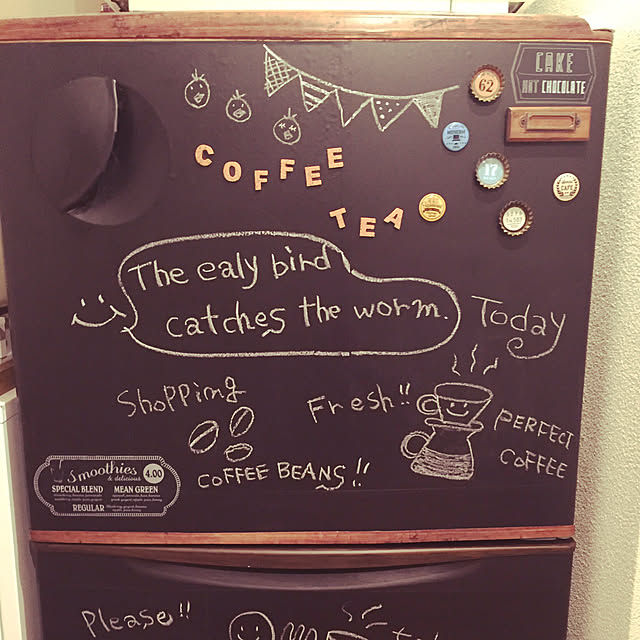 CAKE
HOT CHOCOLATE
62
COFFEE
17
CAFE
TEA
The ealy bird
catches the worm.
Today
Shopping
Fresh!!
PERFECT
COFFEE
COFFEE BEANS!!
Smoothies
& delicious
4.00
SPECIAL BLEND
MEAN GREEN
REGULAR
Please!!